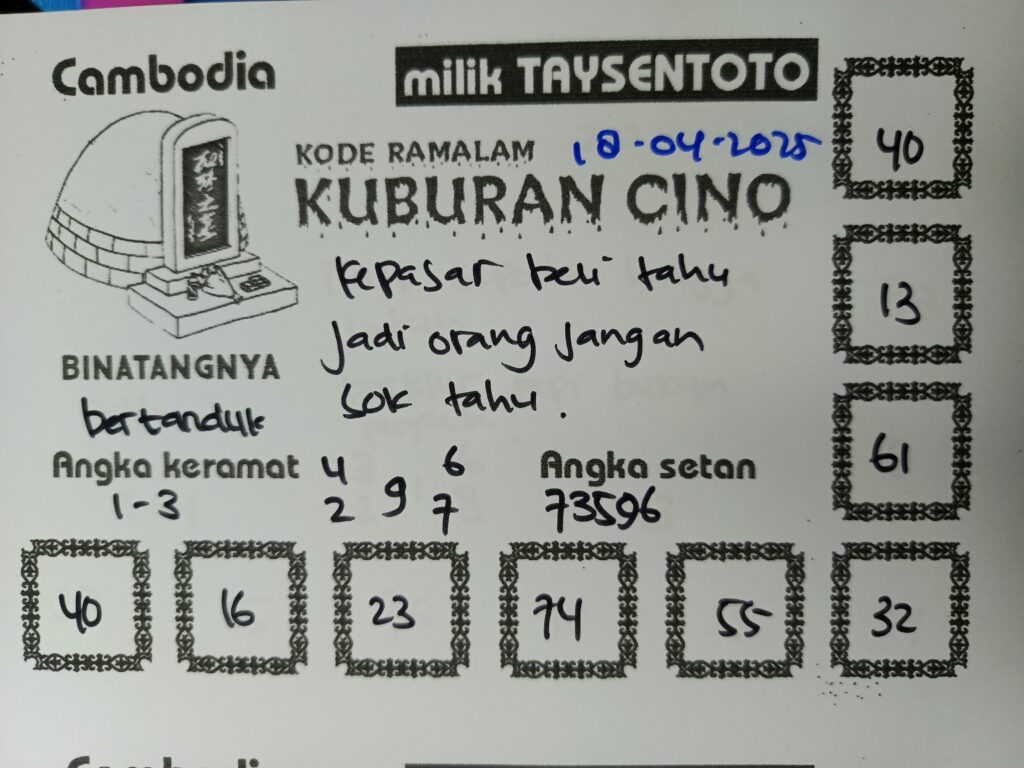 Cambodia
milik TAYSENTOTO
KODE RAMALAM 18-04-2025
KUBURAN CINO
Kepasar beli tahu
Jadi orang Jangan
sok tahu.
BINATANGNYA
bertanduk
Angka keramat
1-3
4 6
9
2 7
Angka setan
73596
40
13
61
40 16 23 74 55 32